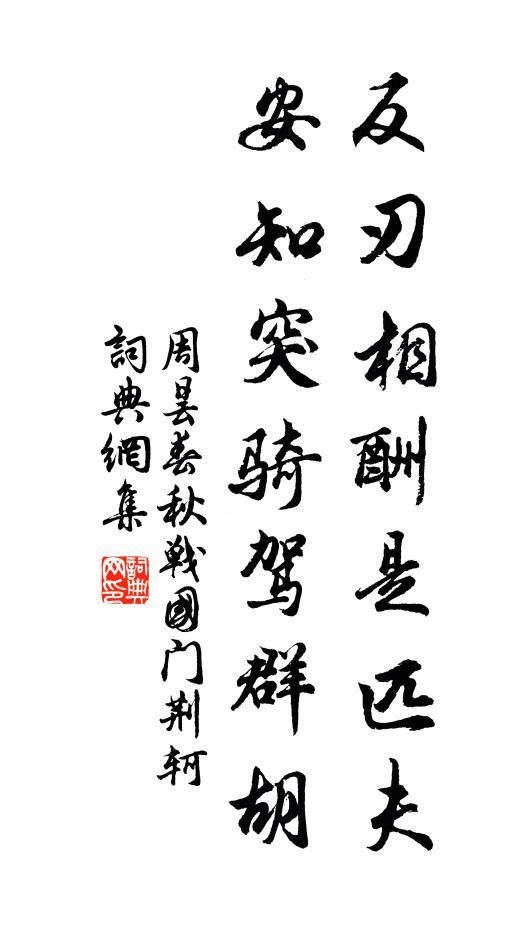 反刃相酬是匹夫
安知突骑驾群胡
周昙春秋戰國门荆轲
詞典網集
詞典网印